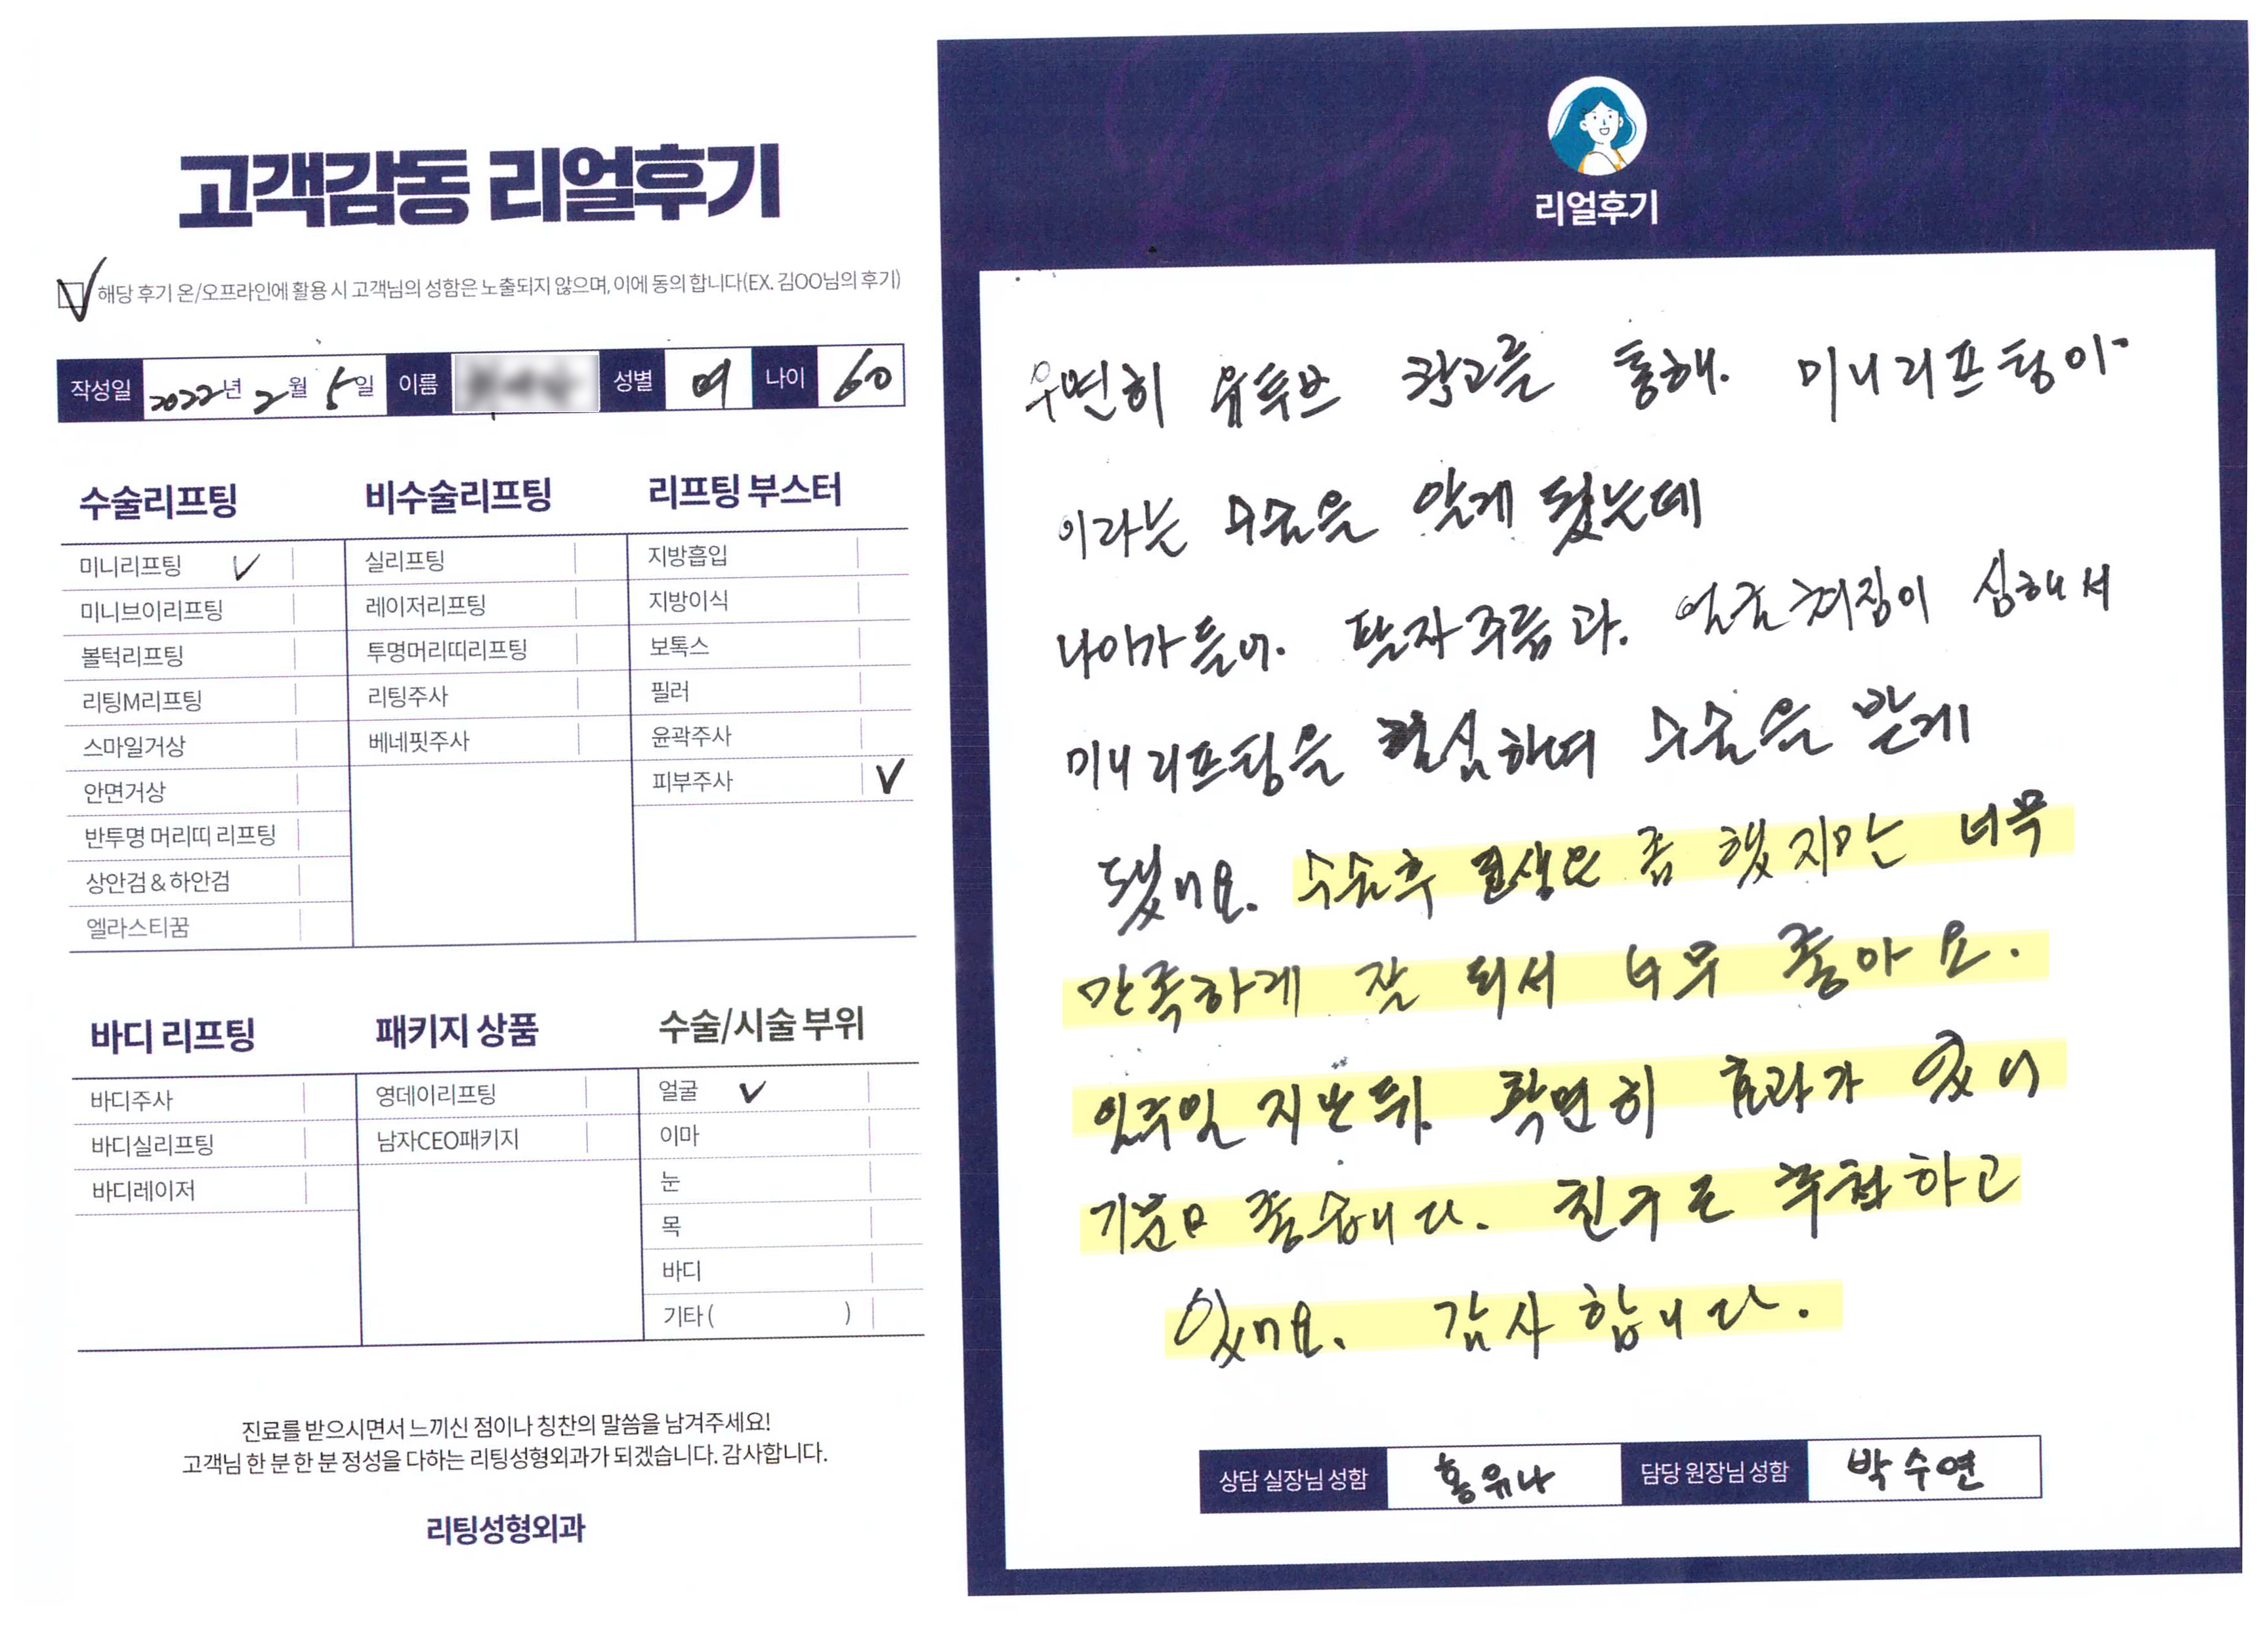 고객감동 리얼후기
해당 후기 온/오프라인에 활용 시 고객님의 성함은 노출되지 않으며, 이에 동의 합니다(EX. 김OO님의 후기)
작성일 2022년 2월 5일 이름 성별 여 나이 60
수술리프팅
미니리프팅 ✓
미니브이리프팅
볼턱리프팅
리팅M리프팅
스마일거상
안면거상
반투명 머리띠 리프팅
상안검 & 하안검
엘라스티꿈
비수술리프팅
실리프팅
레이저리프팅
투명머리띠리프팅
리팅주사
베네핏주사
리프팅 부스터
지방흡입
지방이식
보톡스
필러
윤곽주사
피부주사 ✓
바디 리프팅
바디주사
바디실리프팅
바디레이저
패키지 상품
영데이리프팅
남자CEO패키지
수술/시술 부위
얼굴 ✓
이마
눈
목
바디
기타 ( )
진료를 받으시면서 느끼신 점이나 칭찬의 말씀을 남겨주세요!
고객님 한 분 한 분 정성을 다하는 리팅성형외과가 되겠습니다. 감사합니다.
리팅성형외과
리얼후기
우연히 유투브 광고를 통해. 미니리프팅이
이라는 수술을 알게 됬는데
나이가 들어. 팔자주름과. 얼굴쳐짐이 심해서
미니리프팅을 결심하여 수술을 받게
됐어요. 수술후 고생은 좀 했지만 너무
만족하게 잘 되서 너무 좋아요.
일주일 지난뒤. 확연히 효과가 있어
기분도 좋습니다. 친구도 추천하고
있어요. 감사합니다.
상담 실장님 성함 홍유나 담당 원장님 성함 박수연